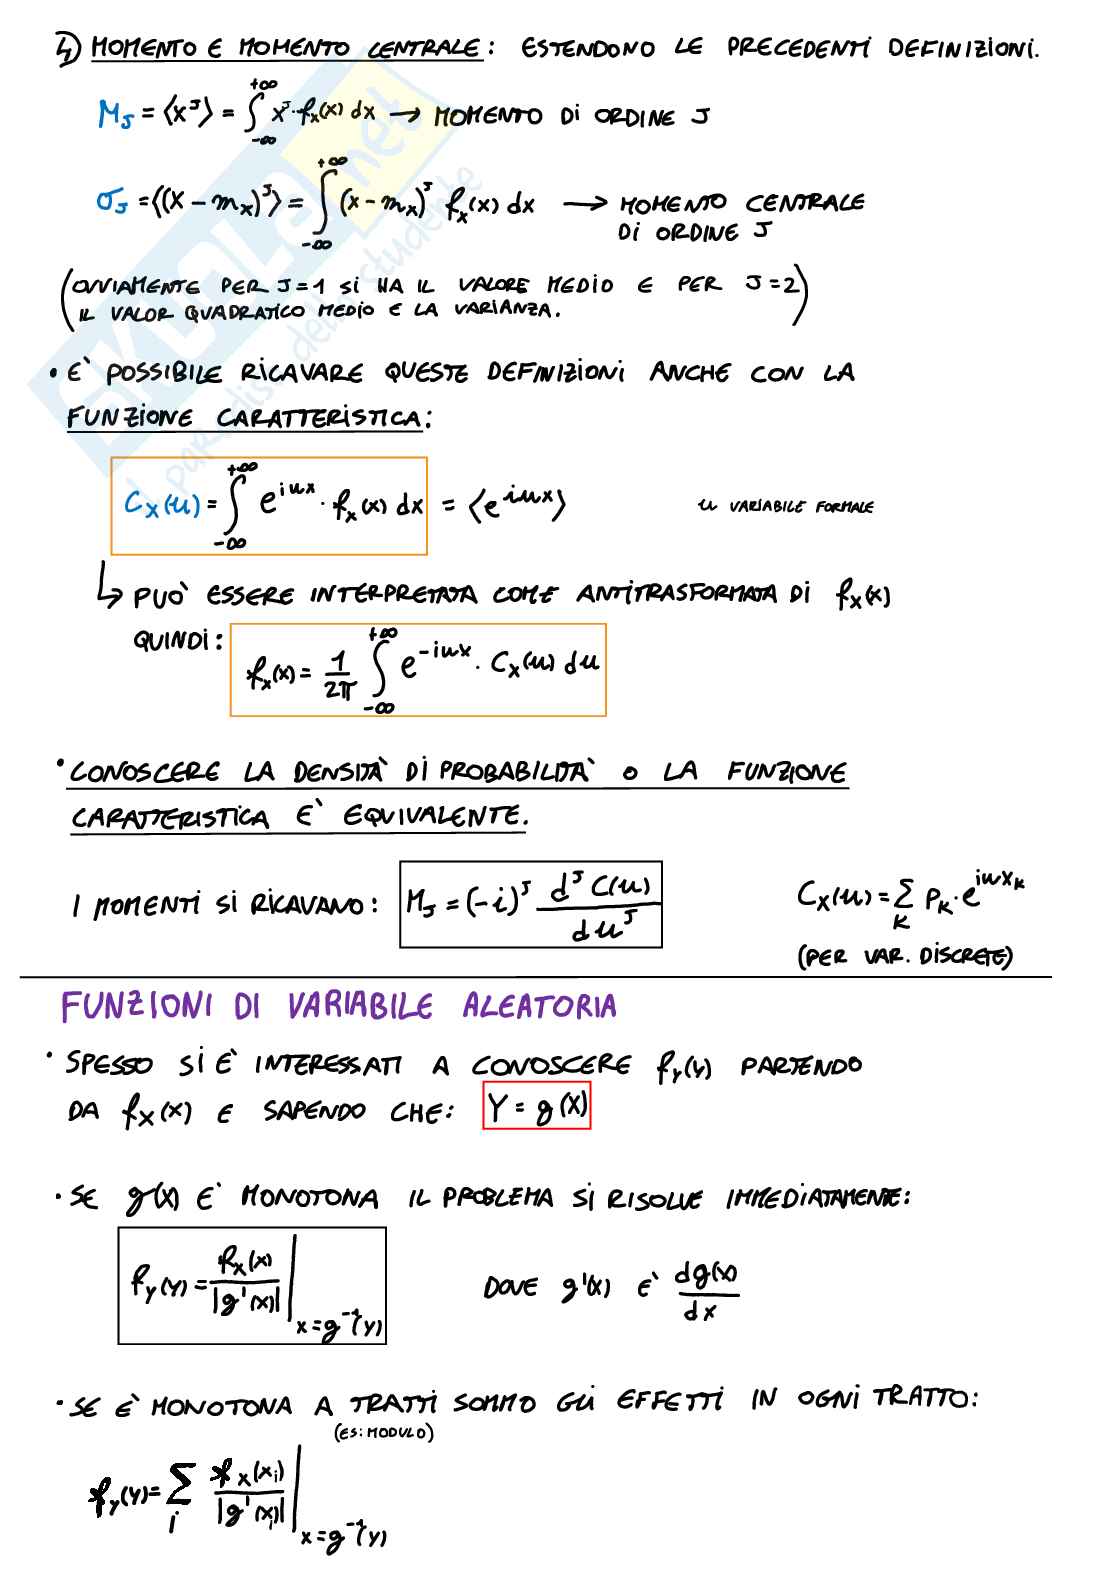 4) MOMENTO E MOMENTO CENTRALE: ESTENDONO LE PRECEDENTI DEFINIZIONI.
M_J = ⟨x^J⟩ = ∫_{-∞}^{+∞} x^J · f_x(x) dx → MOMENTO DI ORDINE J
σ_J = ⟨(x - m_x)^J⟩ = ∫_{-∞}^{+∞} (x - m_x)^J f_x(x) dx → MOMENTO CENTRALE
DI ORDINE J
(OVVIAMENTE PER J=1 SI HA IL VALORE MEDIO E PER J=2
IL VALOR QUADRATICO MEDIO E LA VARIANZA.)
• E` POSSIBILE RICAVARE QUESTE DEFINIZIONI ANCHE CON LA
FUNZIONE CARATTERISTICA:
C_X(u) = ∫_{-∞}^{+∞} e^{iux} · f_x(x) dx = ⟨e^{iux}⟩ u VARIABILE FORMALE
↳ PUO` ESSERE INTERPRETATA COME ANTITRASFORMATA DI f_X(x)
QUINDI: f_x(x) = 1/2π ∫_{-∞}^{+∞} e^{-iux} · C_X(u) du
• CONOSCERE LA DENSITA` DI PROBABILITA` O LA FUNZIONE
CARATTERISTICA E` EQUIVALENTE.
I MOMENTI SI RICAVANO: M_J = (-i)^J d^J C(u) / du^J C_X(u) = Σ_K P_K · e^{iux_K}
(PER VAR. DISCRETE)
FUNZIONI DI VARIABILE ALEATORIA
• SPESSO SI E` INTERESSATI A CONOSCERE f_Y(y) PARTENDO
DA f_X(x) E SAPENDO CHE: Y = g(X)
• SE g(x) E` MONOTONA IL PROBLEMA SI RISOLVE IMMEDIATAMENTE:
f_Y(y) = f_X(x) / |g'(x)| |_{x=g^{-1}(y)} DOVE g'(x) E` dg(x)/dx
• SE E` MONOTONA A TRATTI SOMMO GLI EFFETTI IN OGNI TRATTO:
(ES: MODULO)
f_Y(y) = Σ_i f_X(x_i) / |g'(x_i)| |_{x=g^{-1}(y)}
SKUOLA.net
il paradiso dello studente